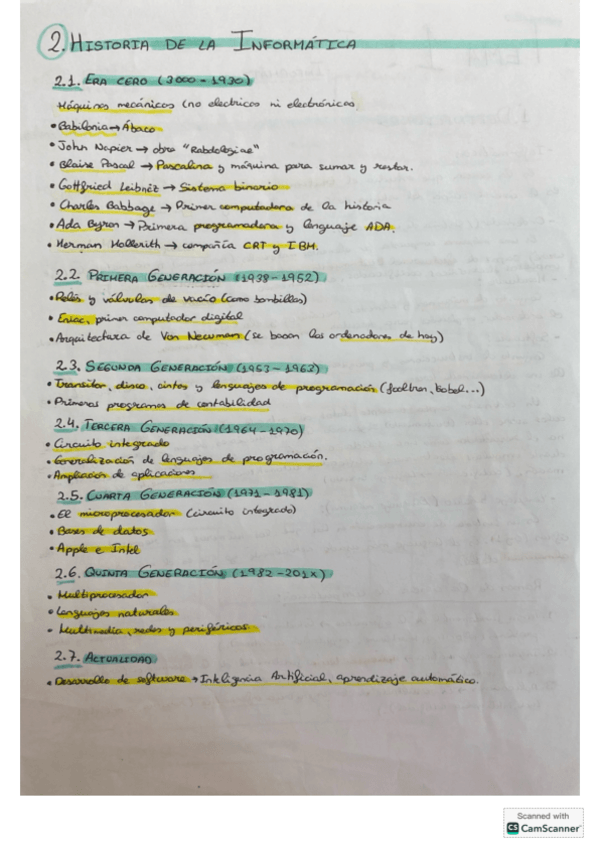 2. HISTORIA DE LA INFORMÁTICA
2.1. ERA CERO (3000 - 1930)
Máquinas mecánicas (no electricos ni electrónicos.
• Babilonia → Ábaco
• John Napier → obra "Rabdologiae"
• Blaise Pascal → Pascalina y máquina para sumar y restar.
• Gottfried Leibniz → Sistema binario
• Charles Babbage → Primer computadora de la historia
• Ada Byron → Primera programadora y lenguaje ADA.
• Herman Hollerith → compañía CRT y IBM.
2.2. PRIMERA GENERACIÓN (1938 - 1952)
• Relés y válvulas de vacío (como bombillas)
• Eniac, primer computador digital
• Arquitectura de Von Newman (se basan los ordenadores de hoy)
2.3. SEGUNDA GENERACIÓN (1953 - 1963)
• Transitor, disco, cintas y lenguajes de programación
• Primeros programas de contabilidad
2.4. TERCERA GENERACIÓN (1964 - 1970)
• Circuito integrado
• Generalización de lenguajes de programación.
• Ampliación de aplicaciones
2.5. CUARTA GENERACIÓN (1971 - 1981)
• El microprocesador (circuito integrado)
• Bases de datos
• Apple e Intel
2.6. QUINTA GENERACIÓN (1982 - 201x)
• Multiprocesador
• Lenguajes naturales
• Multimedia, redes y periféricos
2.7. ACTUALIDAD
• Desarrollo de software → Inteligencia Artificial, aprendizaje automático.
Scanned with
CS CamScanner